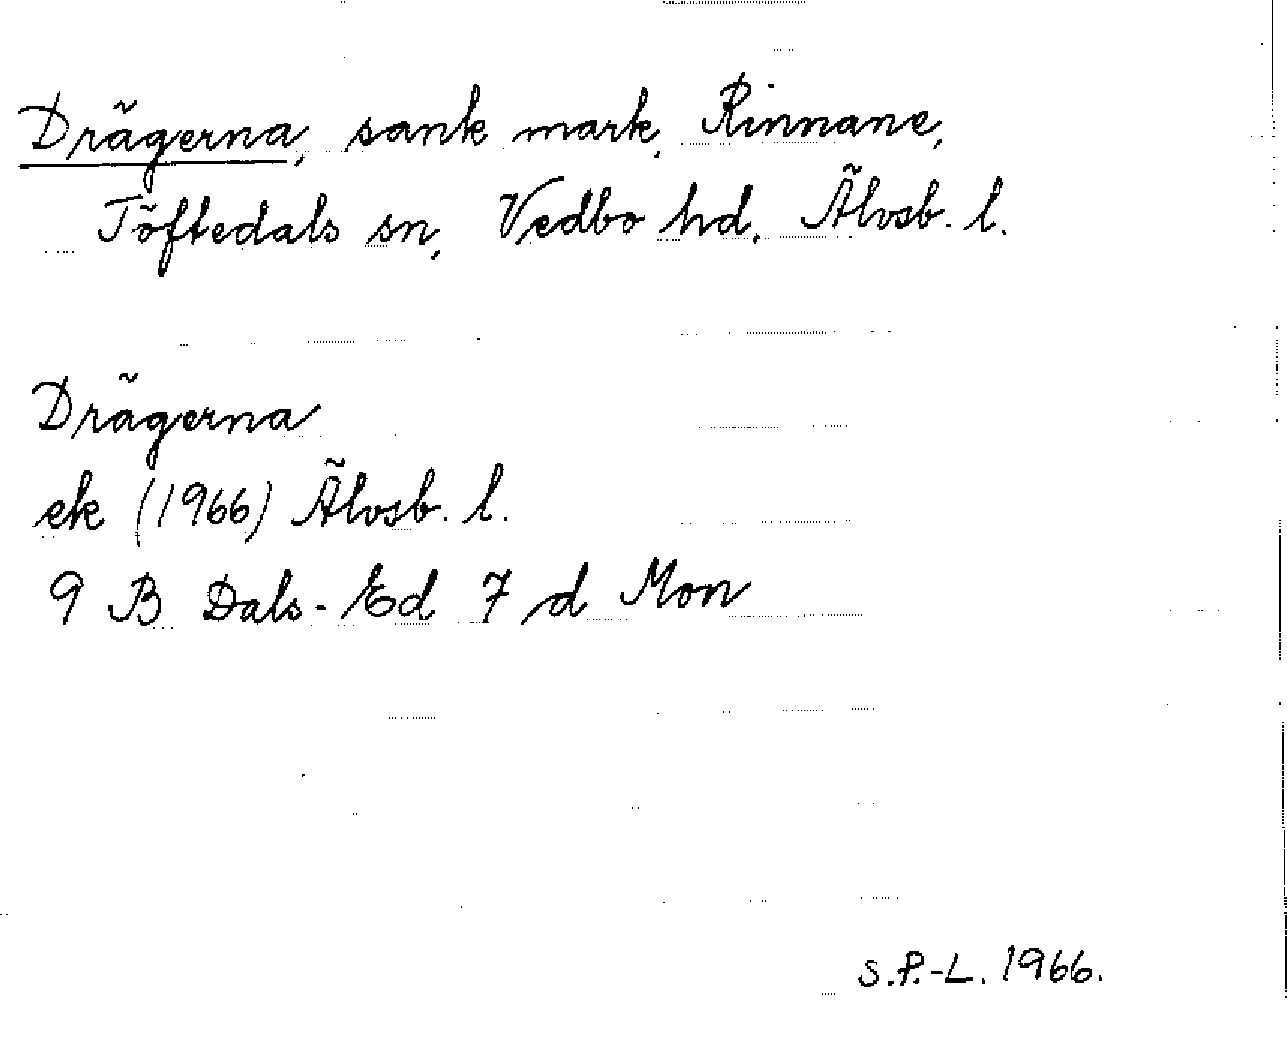 Drägerna, sank mark, Rinnane,
Töftedals sn, Vedbo hd, Älvsb. l.
Drägerna
ek (1966) Älvsb. l.
9 B Dals-Ed 7 d Mon
S.P.-L. 1966.